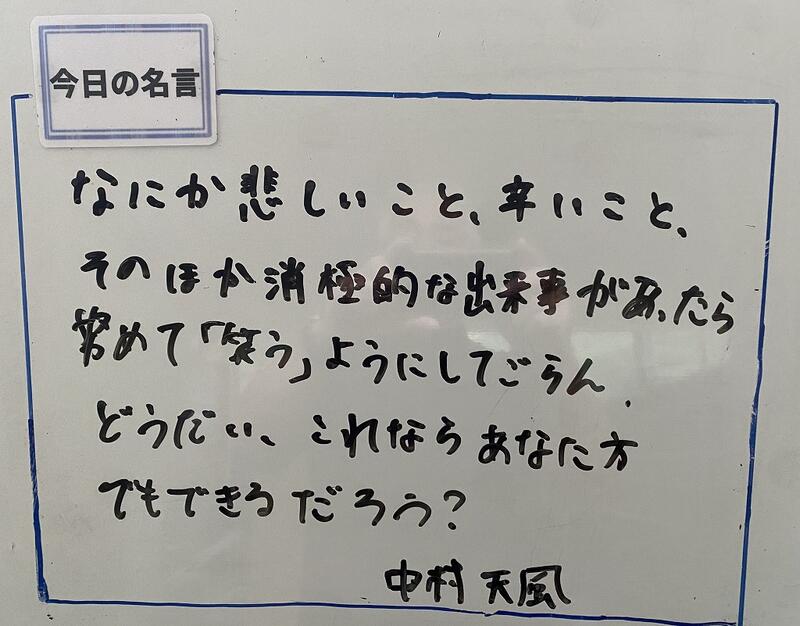 今日の名言
なにか悲しいこと、辛いこと、
そのほか消極的な出来事があったら
努めて「笑う」ようにしてごらん.
どうだい、これならあなた方
でもできるだろう?
中村天風